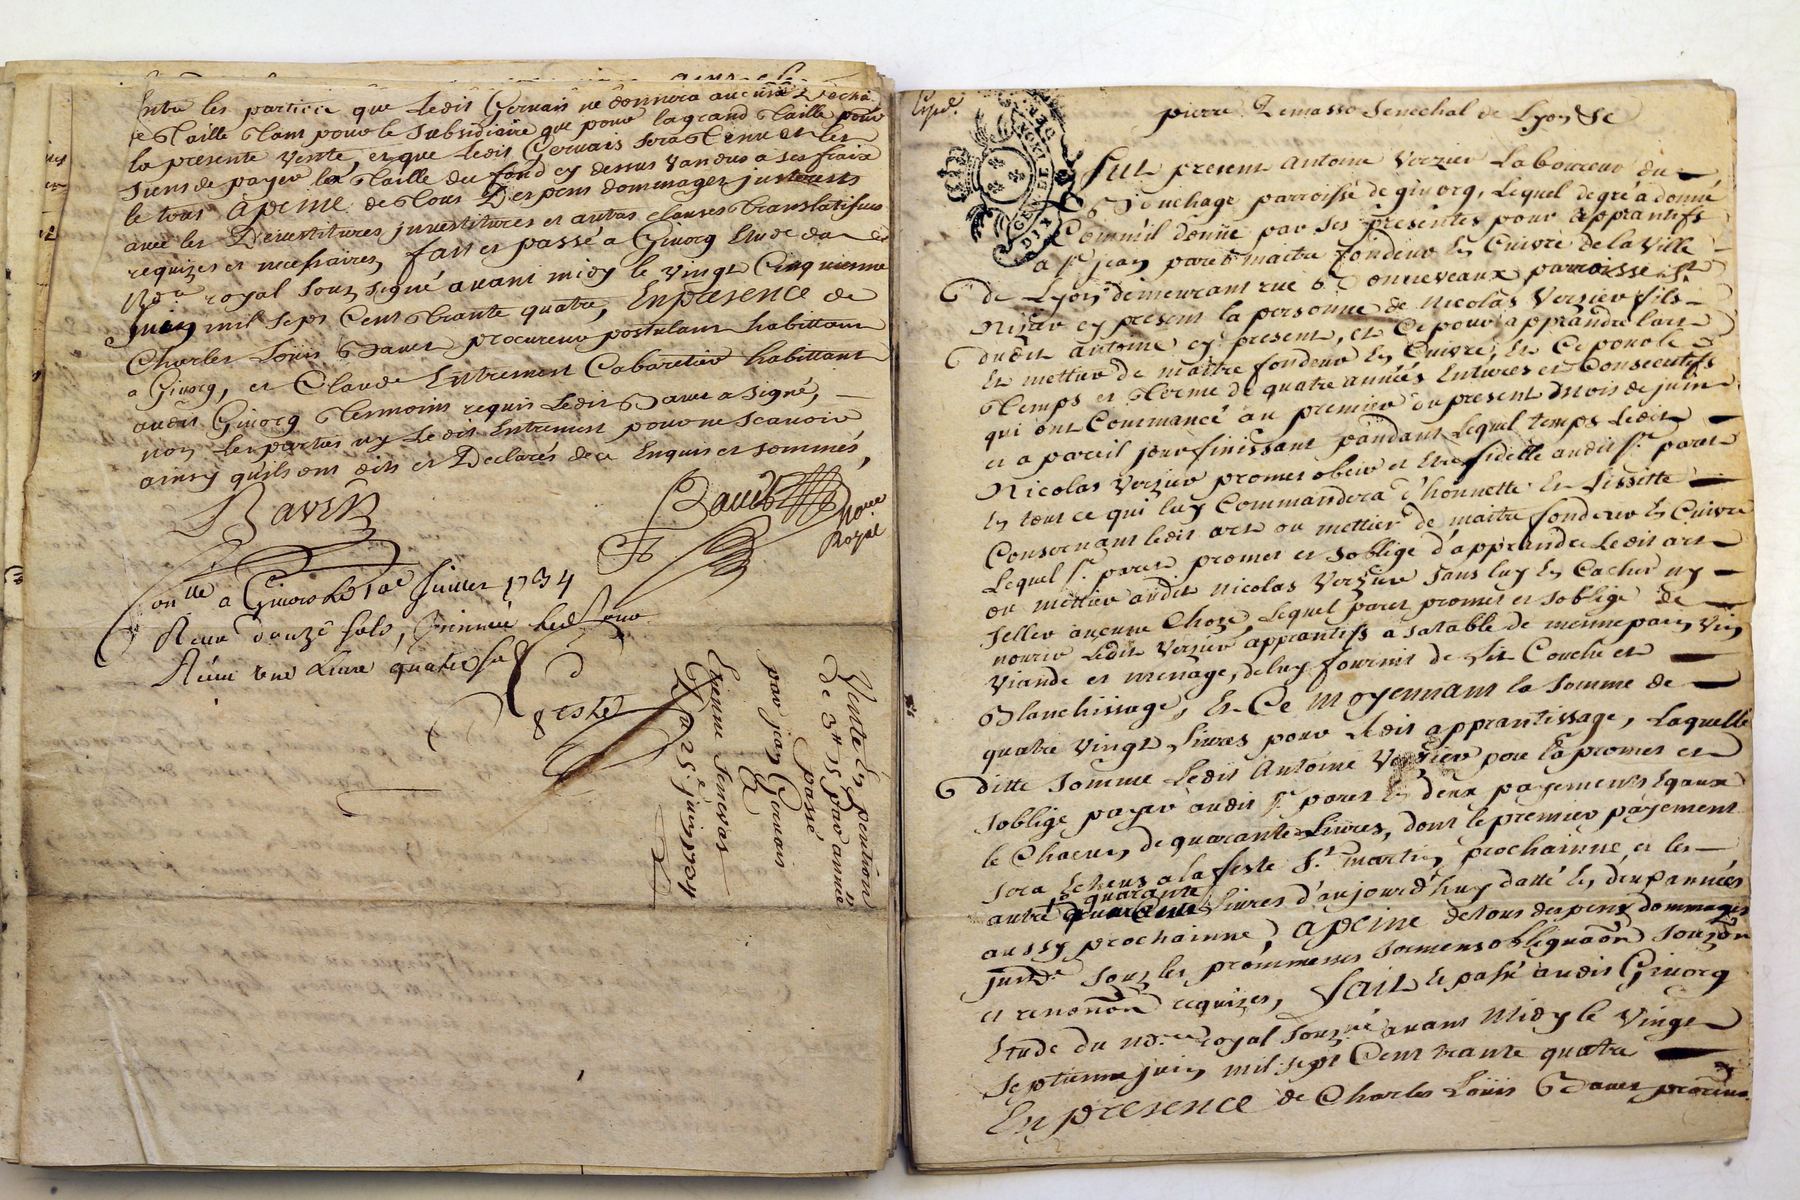 Entre les parties que ledit Gervais ne donnera aucune
de taille tant pour le subsidiaire que pour la grand taille pour
la presente vente, et que ledit Gervais sera tenu et les
siens de payer la taille du fond cy dessus vandus a ses fraix
le tout apeine de tous despens dommages interests
avec les devestitures investitures et autres clauses translatifves
requizes et necessaires, fait et passé a Givorg Etude du
No.re royal souz signé avant midy le vingt Cinquieme
juin mil sept Cent trante quatre, En presence de
Charles Loüis Bavet procureur postulant habittant
a Givorg, et Claude Entremont Cabaretier habittant
audit Givorg tesmoins requis ledit Bavet a signé,
non les parties ny ledit Entremont pour ne scavoir
ainsy qu'ils ont dit et declarés de ce Enquis et sommés,
Bavet
Notaire
Royal
a Givorg le juillet 1734
Receu douze sols,
Receu une livre quatre sols
Vente En pention
de 3ᵗᵗ 15ˢ par année
passé
par jean Gervais
a
Etienne Senevas
Du 25ᵉ juin 1734
Exped.
GEN DE LYON
pierre Senechal de Lyon &c
Fut present antoine Verzier Laboureur du
Bouchage parroisse de givorg, Lequel de gré a donné
Comm'il donne par ses presentes pour apprantifs
a sr. jean paret maitre fondeur En Cuivre de la Ville
de Lyon demeurant rue parroisse St
Nizier cy present la personne de Nicolas Verzier fils
dudit antoine cy present, et Ce pour apprandre l'art
Et mettier de maitre fondeur En Cuivre, Et Ce pour le
temps et terme de quatre années Entieres et Consecutifs
qui ont Commancé au premier du present mois de juin
et a pareil jour finissant pandant lequel temps ledit
Nicolas Verzier promet obeir et Etre fidelle audit sr. paret
En tout ce qui luy Commandera d'honnette Et lissitte
Consernant ledit art ou mettier de maitre fondeur En Cuivre
Lequel sr. paret promet et s'oblige d'apprandre ledit art
ou mettier audit Nicolas Verzier sans luy En Cacher ny
seller aucune Choze, Lequel paret promet et s'oblige de
nourir ledit Verzier apprantifs a sa table de mesme pain, vin
viande et menage, de luy fournir de lit Couche et
Blanchissage, Et Ce moyennant la somme de
quatre vingt livres pour ledit apprantissage, Laquelle
ditte somme ledit Antoine Verzier pere la promet et
s'oblige payer audit sr. paret En deux payements Egaux
le Chacun de quarante livres, dont le premier payement
sera Echeus a la feste St. martin prochainne, et les
autre quarante livres d'aujourd'huy datté En deux années
aussy prochainne, apeine de tous despens dommages
sous les prommesses sermens obligaõn soumzõn
et renonõn requizes, Fait Et passé audit Givorg
Etude du No.re royal souz.né avant Midy le vingt
septieme juin mil sept Cent trante quatre
En presence de Charles Loüis Bavet procureur